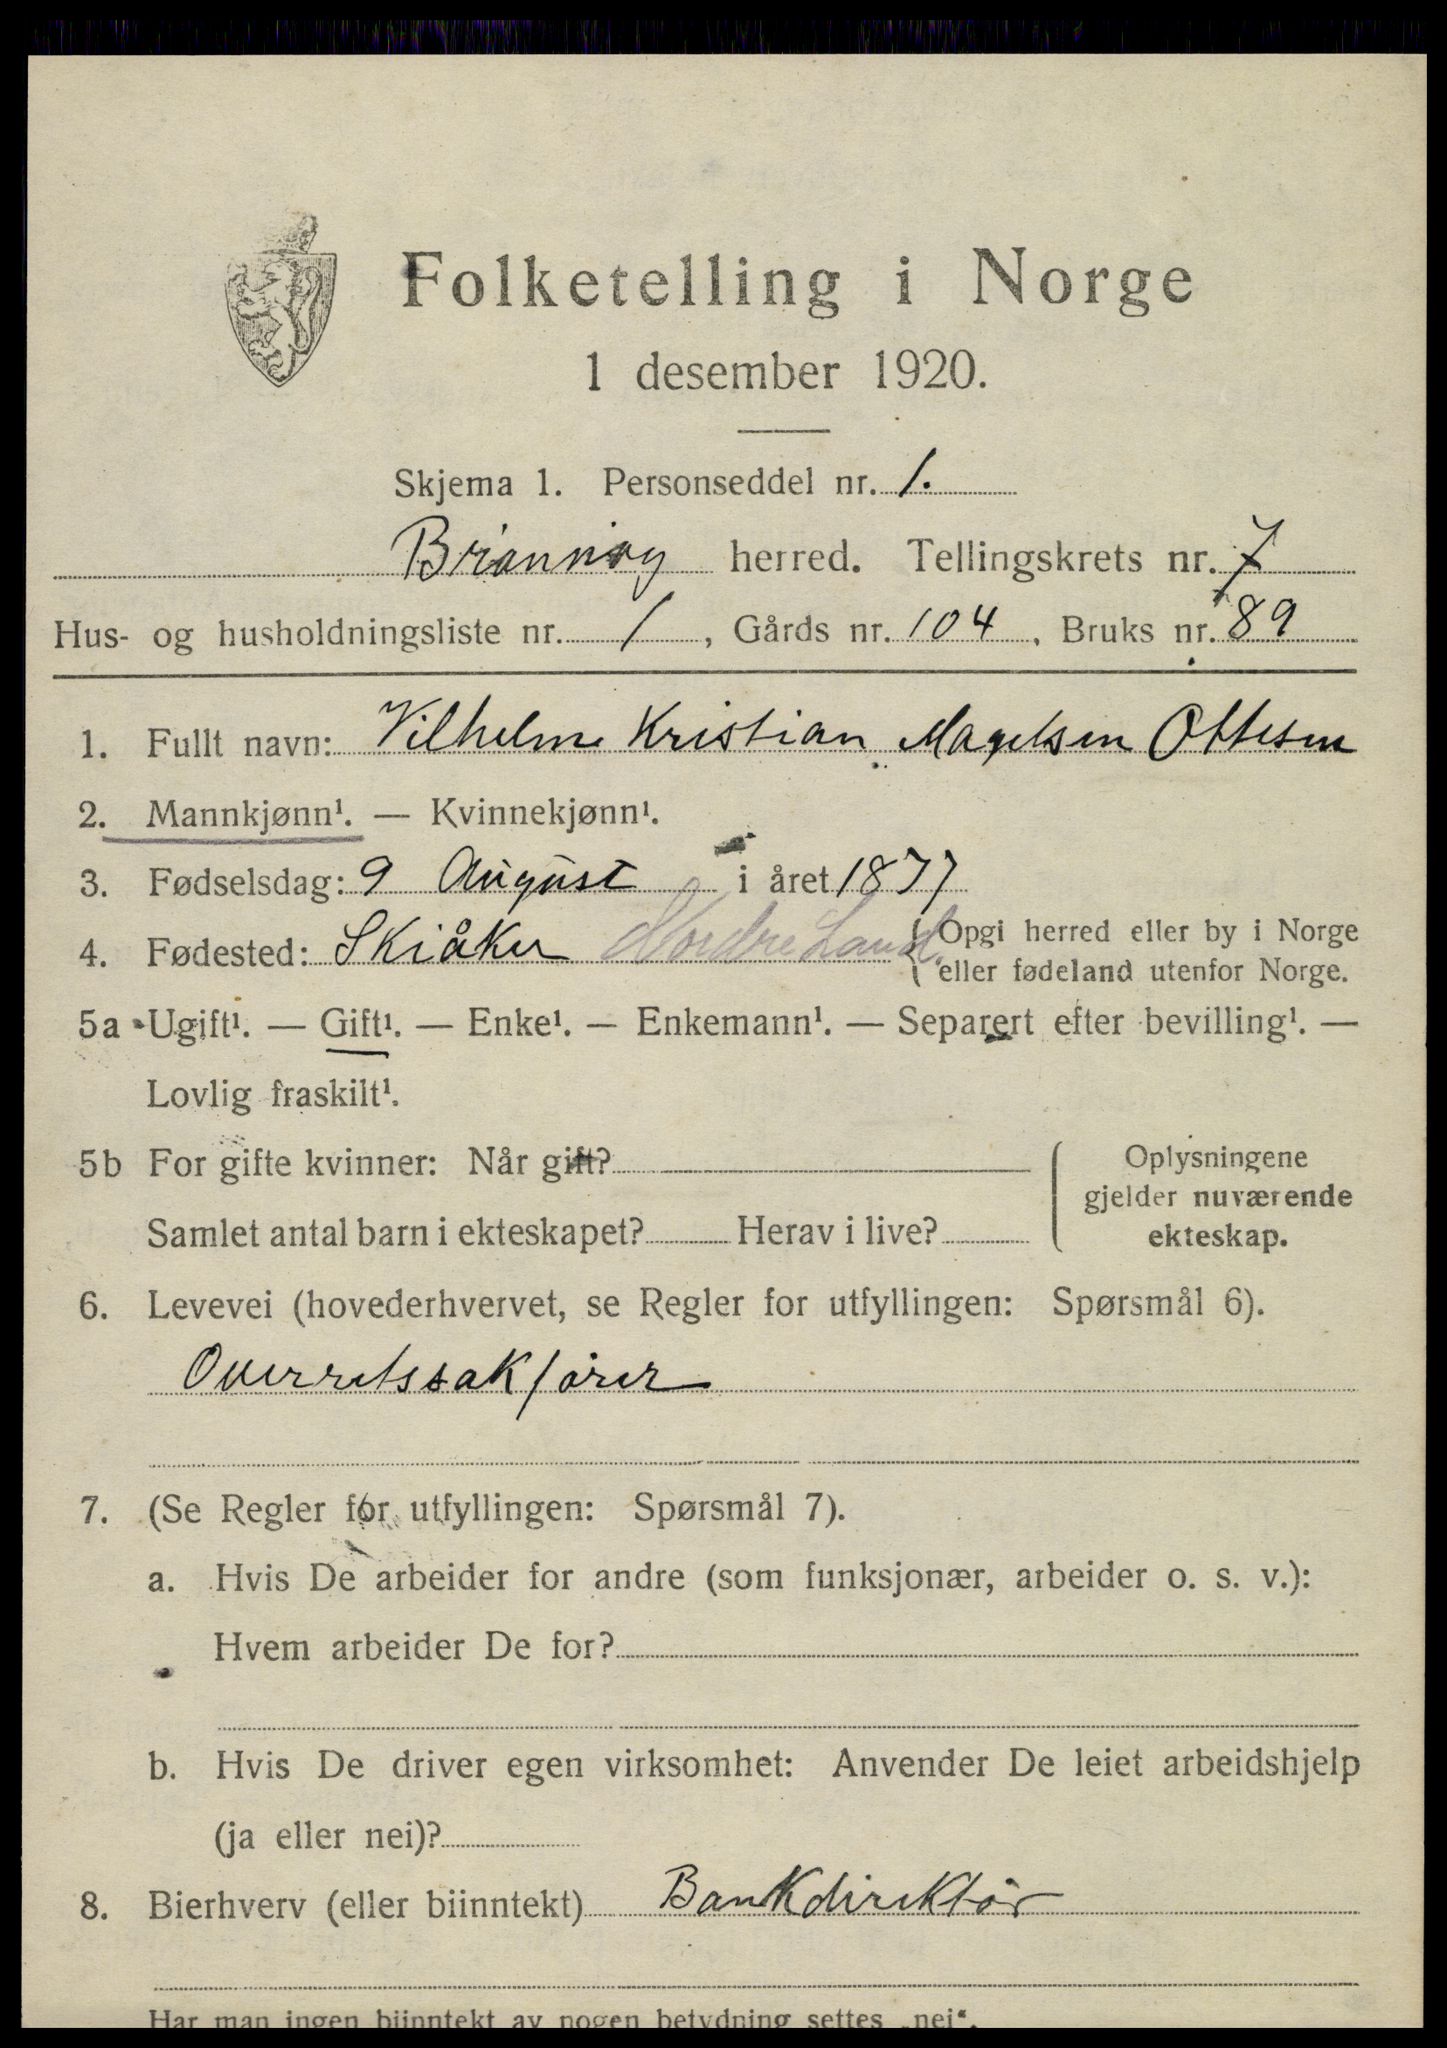 Folketelling i Norge
1 desember 1920.
Skjema 1. Personseddel nr. 1.
Brønnøy herred. Tellingskrets nr. 7
Hus- og husholdningsliste nr. 1, Gårds nr. 104, Bruks nr. 89
1. Fullt navn: Vilhelm Kristian Magelsen Ottesen
2. Mannkjønn¹. — Kvinnekjønn¹.
3. Fødselsdag: 9 August i året 1877
4. Fødested: Skiåker Nordre Land. { Opgi herred eller by i Norge
eller fødeland utenfor Norge.
5a Ugift¹. — Gift¹. — Enke¹. — Enkemann¹. — Separert efter bevilling¹. —
Lovlig fraskilt¹.
5b For gifte kvinner: Når gift?
Samlet antal barn i ekteskapet? Herav i live?
Oplysningene
gjelder nuværende
ekteskap.
6. Levevei (hovederhvervet, se Regler for utfyllingen: Spørsmål 6).
Overretssakfører
7. (Se Regler for utfyllingen: Spørsmål 7).
a. Hvis De arbeider for andre (som funksjonær, arbeider o. s. v.):
Hvem arbeider De for?
b. Hvis De driver egen virksomhet: Anvender De leiet arbeidshjelp
(ja eller nei)?
8. Bierhverv (eller biinntekt) Bankdirektør
Har man ingen biinntekt av nogen betydning settes „nei“.